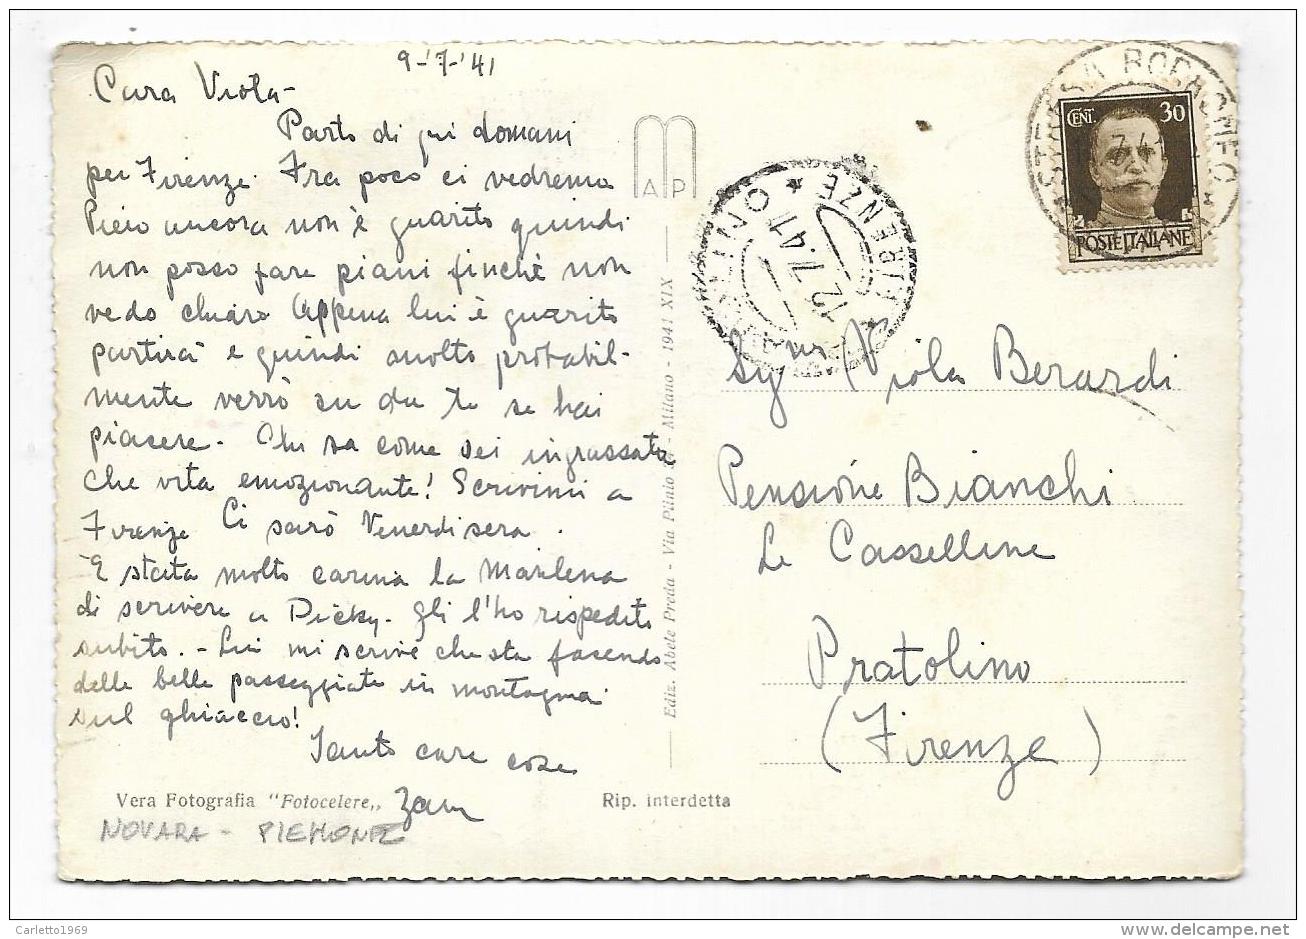 9-'7-'41
Cara Viola-
Parto di qui domani
per Firenze. Fra poco ci vedremo
Piero ancora non è guarito quindi
non posso fare piani finchè non
vedo chiaro Appena lui è guarito
partirà e quindi molto probabil-
mente verrò su da te se hai
piacere. Chi sa come sei ingrassata
che vita emozionante! Scrivimi a
Firenze Ci sarò Venerdi sera.
È stata molto carina la Marilena
di scrivere a Dicky. Gli l'ho rispedito
subito. - Lui mi scrive che sta facendo
delle belle passeggiate in montagna
sul ghiaccio!
Tante care cose
Vera Fotografia "Fotocelere„
NOVARA - PIEMONTE
A P
Ediz. Abele Preda - Via Plinio - Milano - 1941 XIX
Rip. interdetta
PRATOLINO * FIRENZE
12.7.41
STRESA BORROMEO
CENT. 30
POSTE ITALIANE
Viola Berardi
Pensione Bianchi
Le Casselline
Pratolino
(Firenze)
Carletto1969
www.delcampe.net